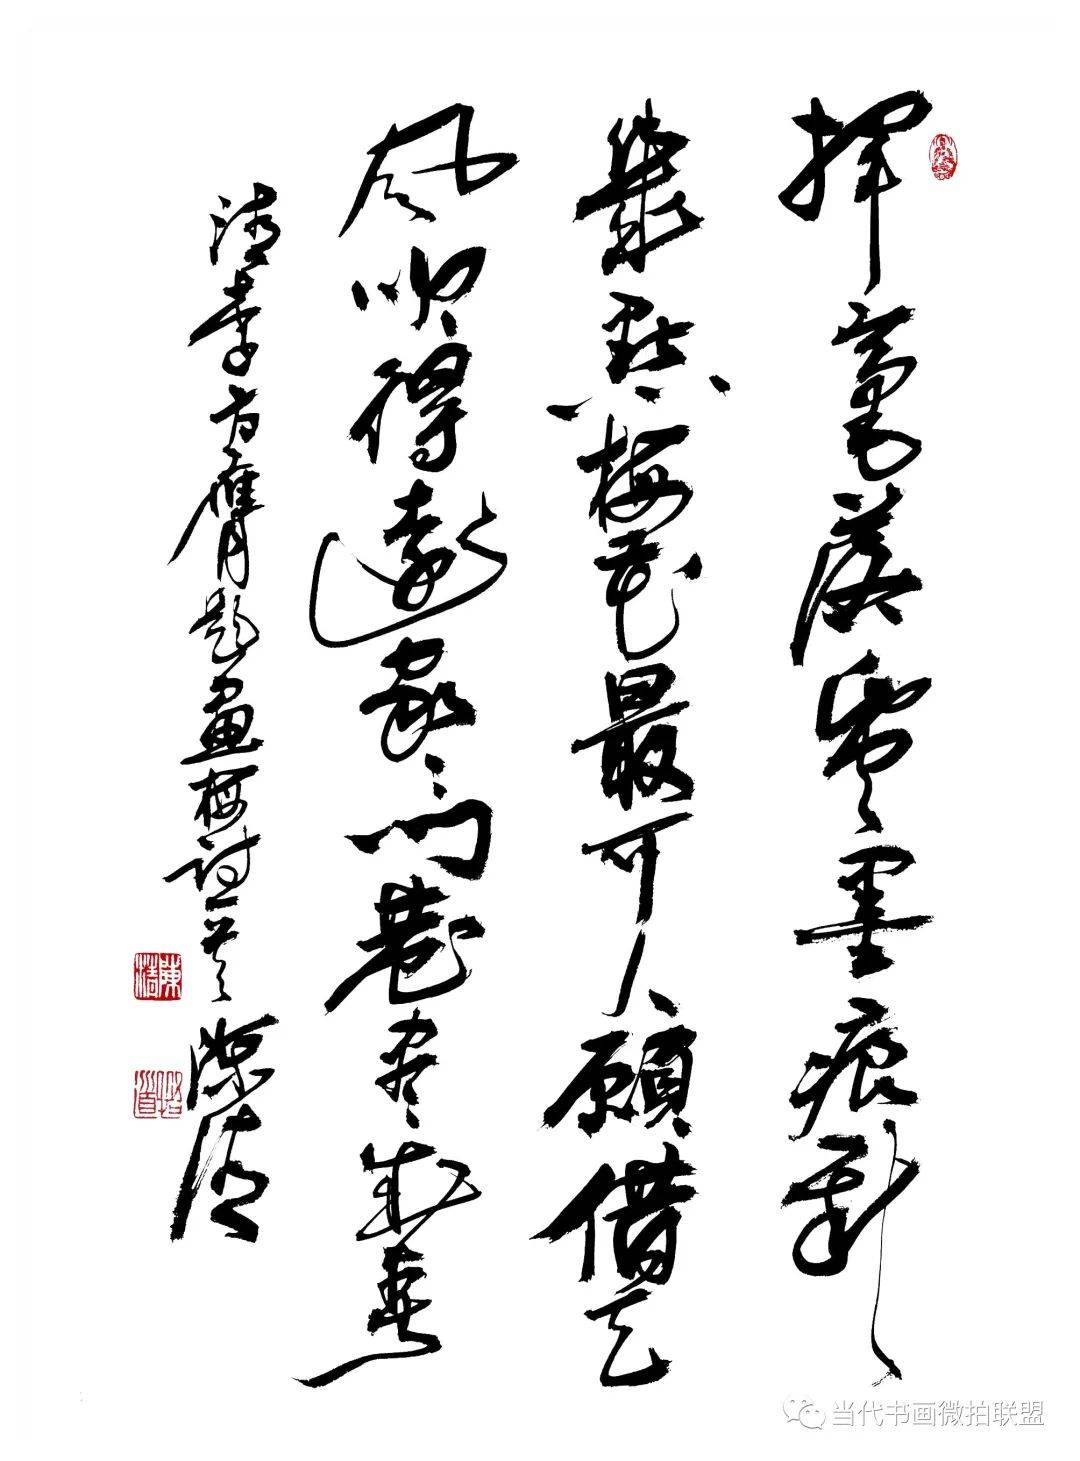 揮毫落紙墨痕新
幾點梅花最可人願借天
風吹得遠家家門巷盡成春
清李方膺題畫梅詩一首陳濤
陳濤
当代书画微拍联盟